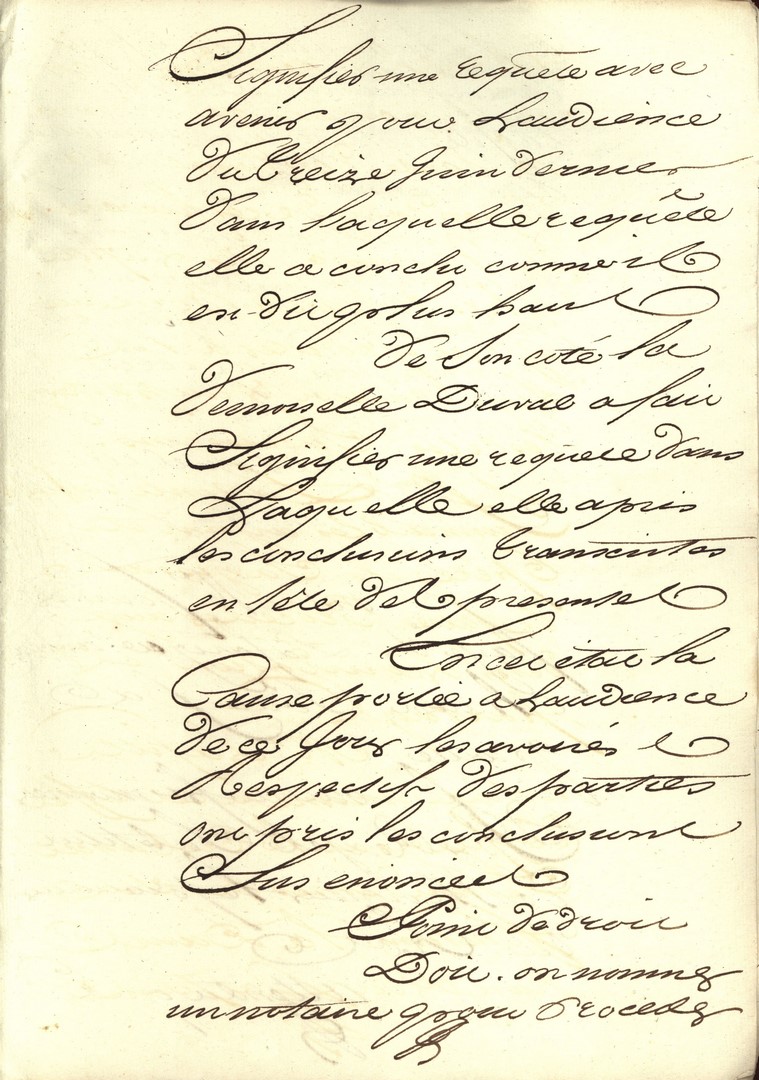 Signifier une requête avec
avenir pour Laudience
du treize Juin dernier
dans laquelle requête
elle a conclu comme il
est dit plus haut
de Son coté la
demoiselle Duval a fait
Signifier une requete dans
Laquelle elle a pris
les conclusions transcrites
en tête des presentes
En cet état la
Cause portée a Laudience
de ce Jour les avoués
Respectifs des parties
ont pris les conclusions
Sus enoncées
Point de droit
Doit-on nommer
un notaire pour Proceder